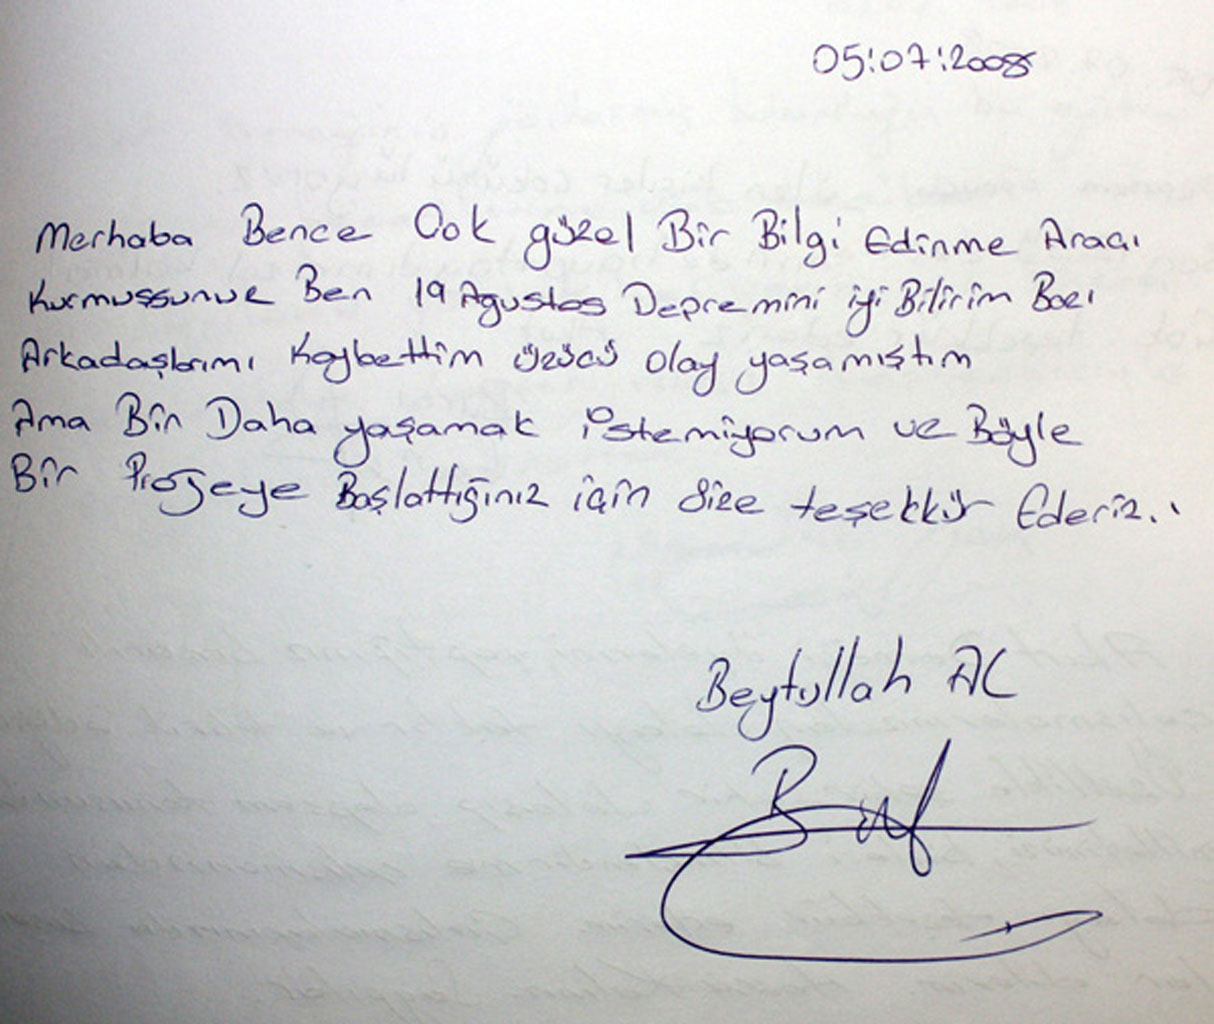 05:07:2008
Merhaba Bence Cok güzel Bir Bilgi Edinme Aracı
Kurmuşsunuz Ben 19 Ağustos Depremini iyi Bilirim Bazı
Arkadaşlarımı Kaybettim üzücü olay yaşamıştım
Ama Bir Daha yaşamak istemiyorum ve Böyle
Bir Projeye Başlattığınız için Size teşekkür Ederiz..
Beytullah AC